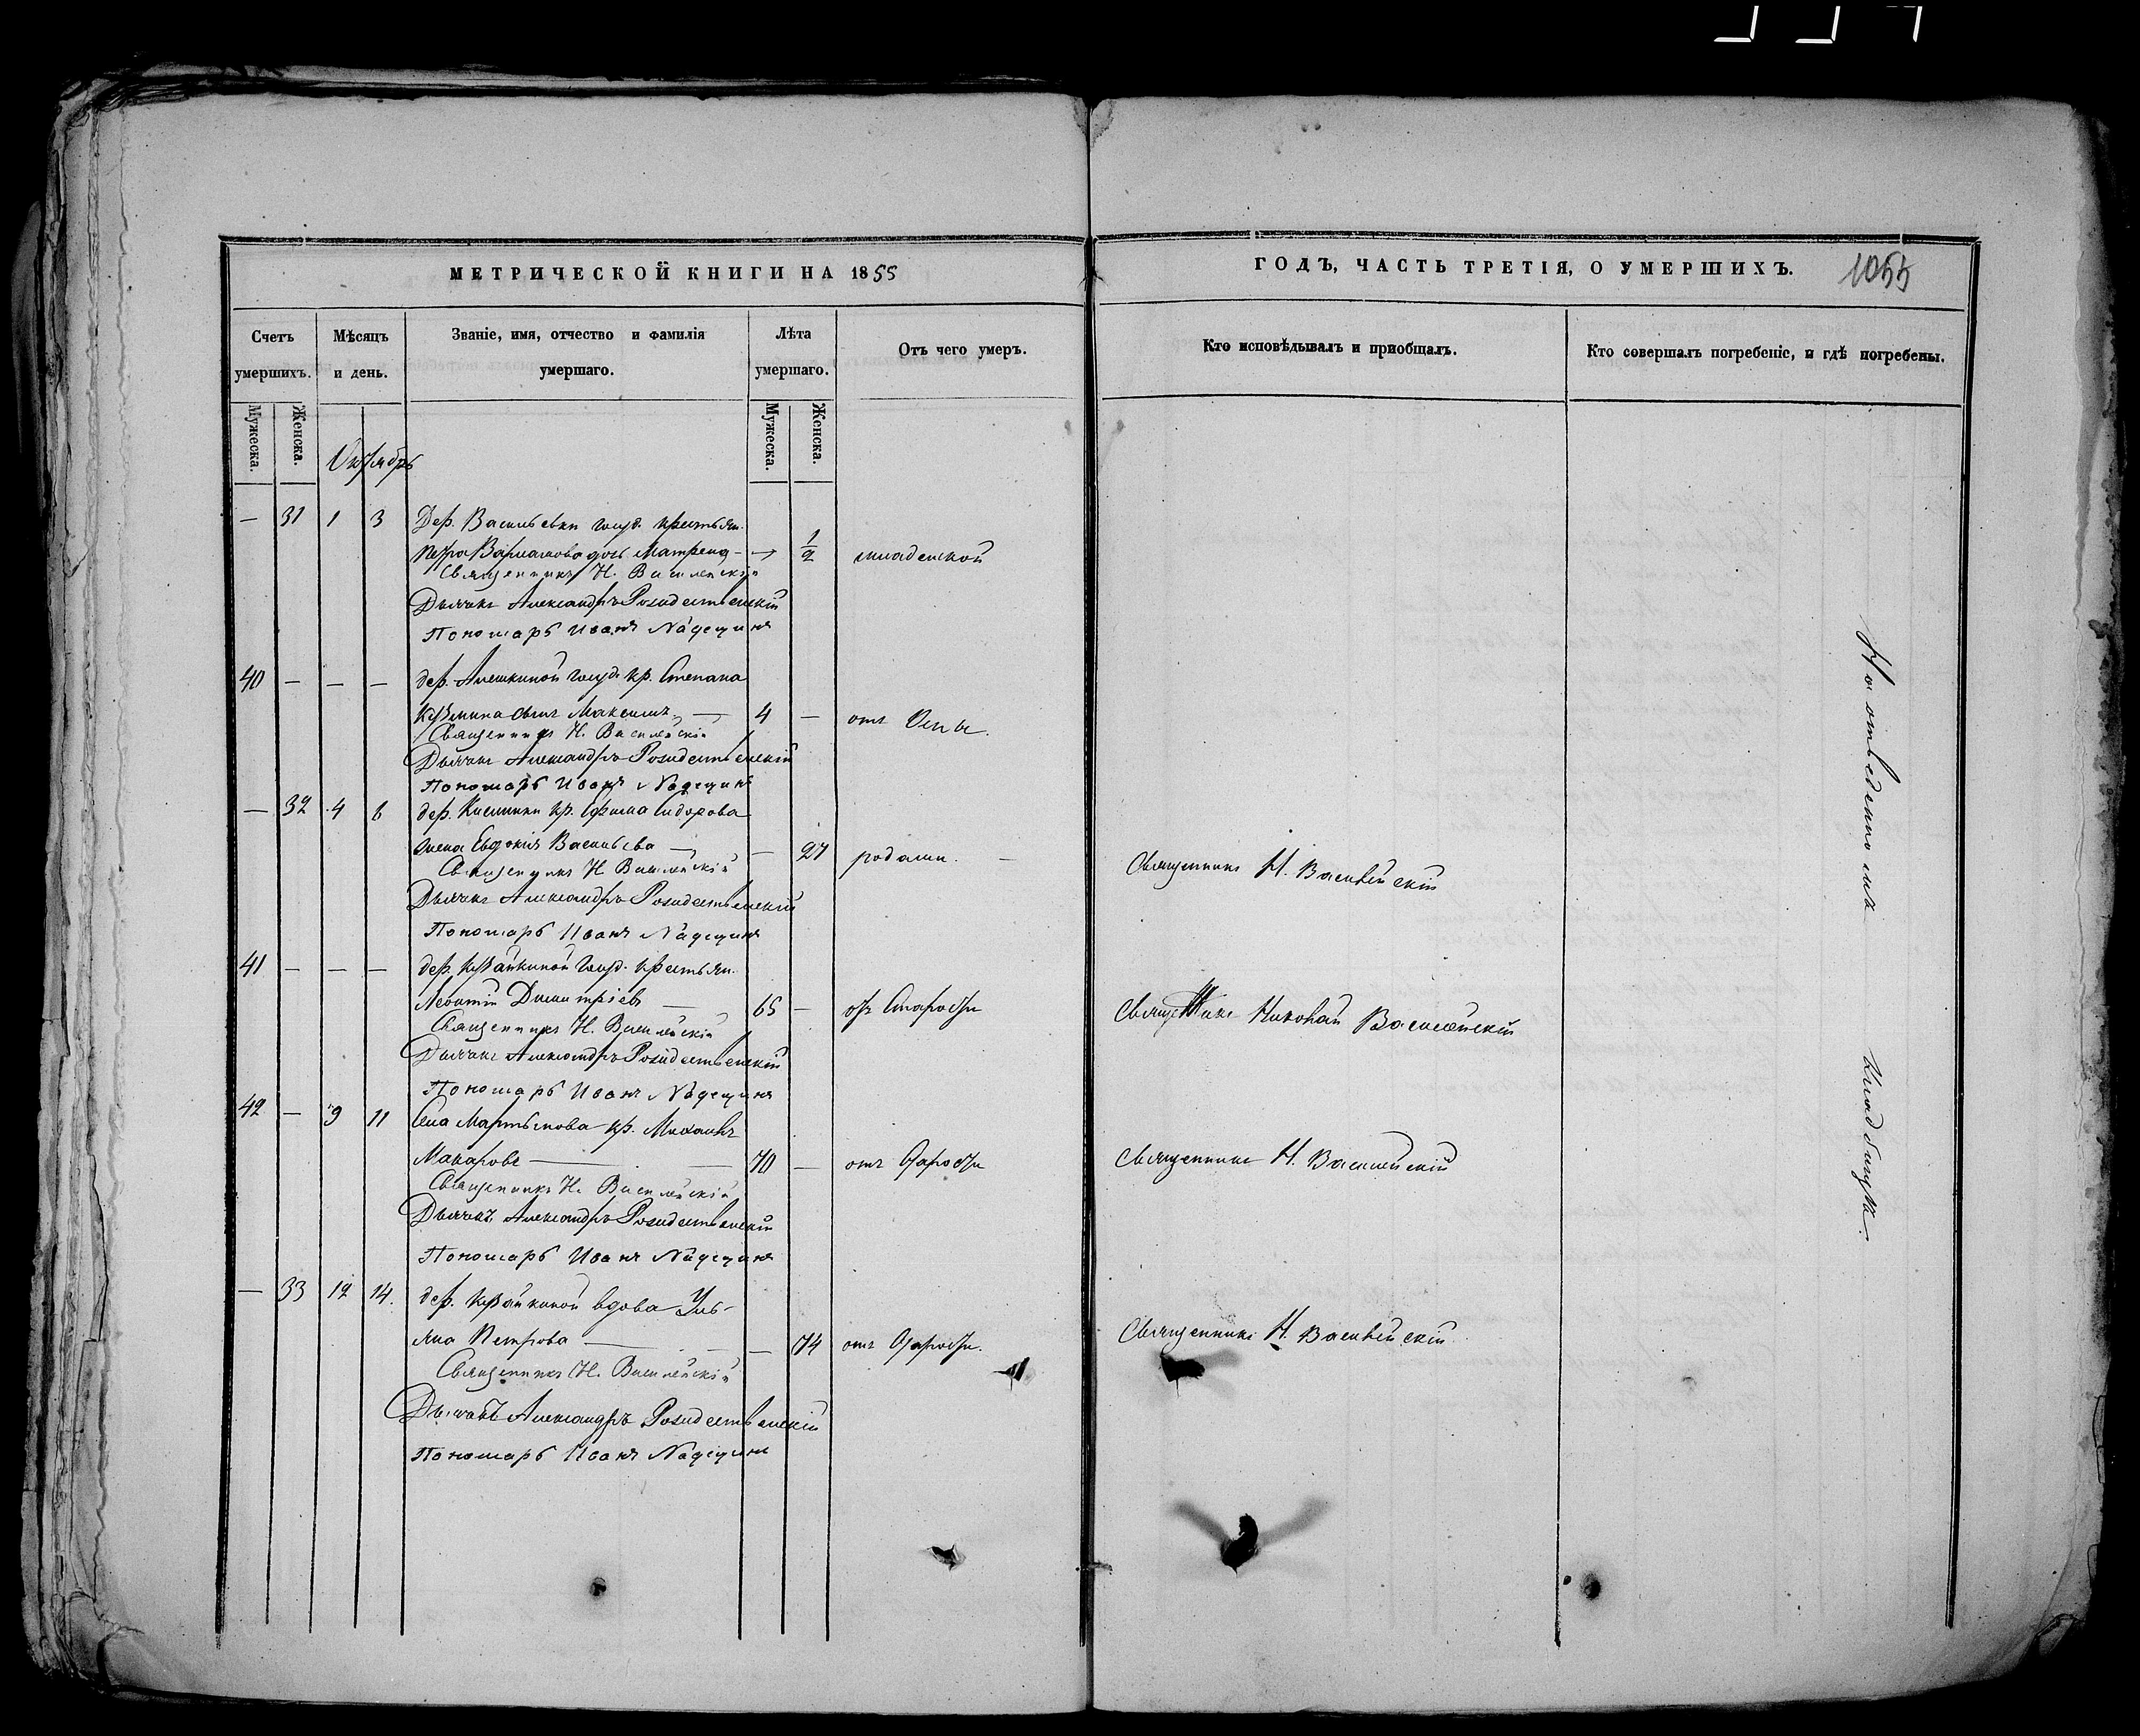 МЕТРИЧЕСКОЙ КНИГИ НА 1855
ГОДЪ, ЧАСТЬ ТРЕТІЯ, О УМЕРШИХЪ.
1055
Счетъ умершихъ.
Мѣсяцъ и день.
Званіе, имя, отчество и фамилія умершаго.
Лѣта умершаго.
Отъ чего умеръ.
Кто исповѣдывалъ и пріобщалъ.
Кто совершалъ погребеніе, и гдѣ погребены.
Мужеска.
Женска.
Мужеска.
Женска.
Октябрь
— 31 1 3 Дер. Васильевки госуд. крестьян.
Петра Варламова дочь Матрена — 1/2 младенской
Священникъ Н. Василейскій
Дьячекъ Александръ Рождественскій
Пономарь Иванъ Надеждинъ
40 — — — дер. Алешкиной госуд. кр. Степана
Кузмина сынъ Максимъ — 4 — отъ Оспы.
Священникъ Н. Василейскій
Дьячекъ Александръ Рождественскій
Пономарь Иванъ Надеждинъ
— 32 4 6 дер. кр. Ефима Сидорова
жена Евдокія Васильева — — 27 родами. — Священникъ Н. Василейскій
Священникъ Н. Василейскій
Дьячекъ Александръ Рождественскій
Пономарь Иванъ Надеждинъ
41 — — — дер. госуд. крестьян.
Леонтій Димитріевъ — 65 — отъ Старости Священникъ Николай Василейскій
Священникъ Н. Василейскій
Дьячекъ Александръ Рождественскій
Пономарь Иванъ Надеждинъ
42 — 9 11 Села Мартынова кр. Михаилъ
Макаровъ — — 70 — отъ Старости Священникъ Н. Василейскій
Священникъ Н. Василейскій
Дьячекъ Александръ Рождественскій
Пономарь Иванъ Надеждинъ
— 33 12 14. дер. вдова Уль-
яна Петрова — — — 74 отъ Старости. Священникъ Н. Василейскій
Священникъ Н. Василейскій
Дьячекъ Александръ Рождественскій
Пономарь Иванъ Надеждинъ
На отведенномъ Кладбищѣ.